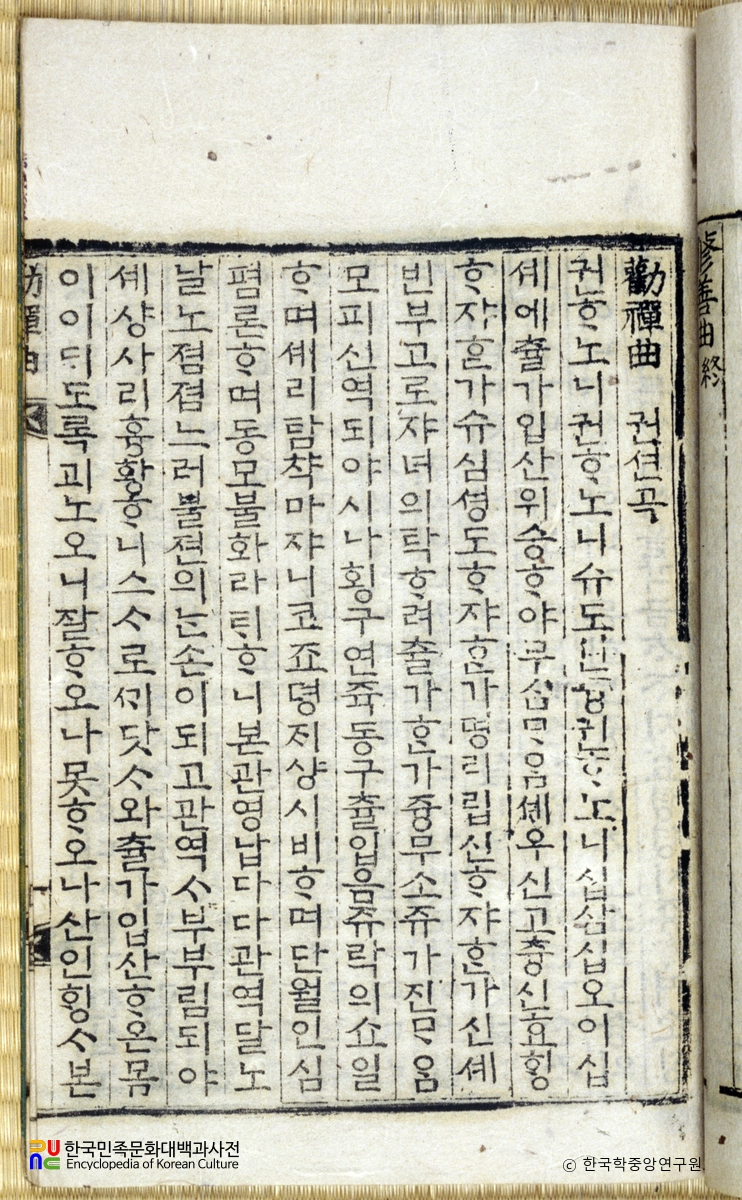 修善曲終
勸禪曲 권션곡
권ᄒᆞ노니권ᄒᆞ노니슈도권ᄒᆞ노니십삼십오이십
셰에츌가입산위승ᄒᆞ야무삼ᄆᆞ음셰우신고츙신효ᄒᆡᆼ
ᄒᆞ쟈ᄒᆞᆫ가슈심셩도ᄒᆞ쟈ᄒᆞᆫ가명리립신ᄒᆞ쟈ᄒᆞᆫ가신셰
빈부고로쟈녀의탁ᄒᆞ려츌가ᄒᆞᆫ가즁무소쥬가진ᄆᆞ음
모피신역되야시나횡구연쥭동구츌입음쥬락의쇼일
ᄒᆞ며셰리탐챡마쟈니코죠뎡지샹시비ᄒᆞ며단월인심
폄론ᄒᆞ며동모불화라티ᄒᆞ니본관영납다다관역말노
날노졈졈느러불젼의ᄂᆞᆫ손이되고관역ᄉᆞ부부림되야
셰샹사리흉황ᄒᆞ니스ᄉᆞ로ᄭᆡ닷ᄉᆞ와츌가입산ᄒᆞ온몸
이이ᄃᆡ도록괴노오니잘ᄒᆞ오나못ᄒᆞ오나산인ᄒᆡᆼᄉᆞ본
勸禪曲
한국민족문화대백과사전
Encyclopedia of Korean Culture
ⓒ 한국학중앙연구원